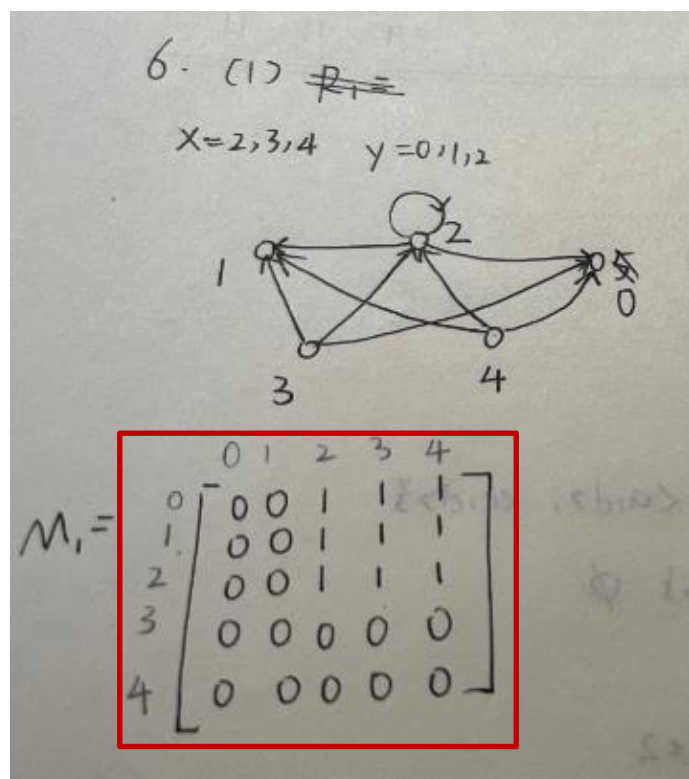 6. (1)
X=2,3,4 y=0,1,2
2
1
0
3 4
0 1 2 3 4
0 0 0 1 1 1
M₁= 1 0 0 1 1 1
2 0 0 1 1 1
3 0 0 0 0 0
4 0 0 0 0 0